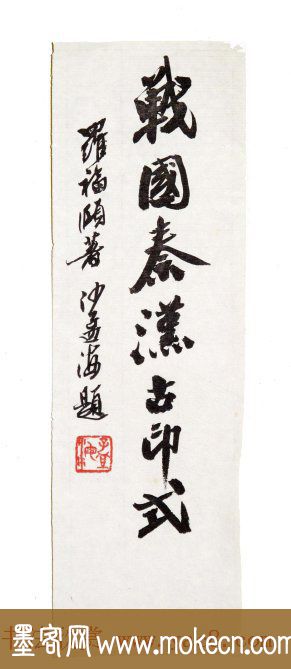 戰國秦漢古印式
羅福頤著 沙孟海題
墨客网 www.mokecn.com